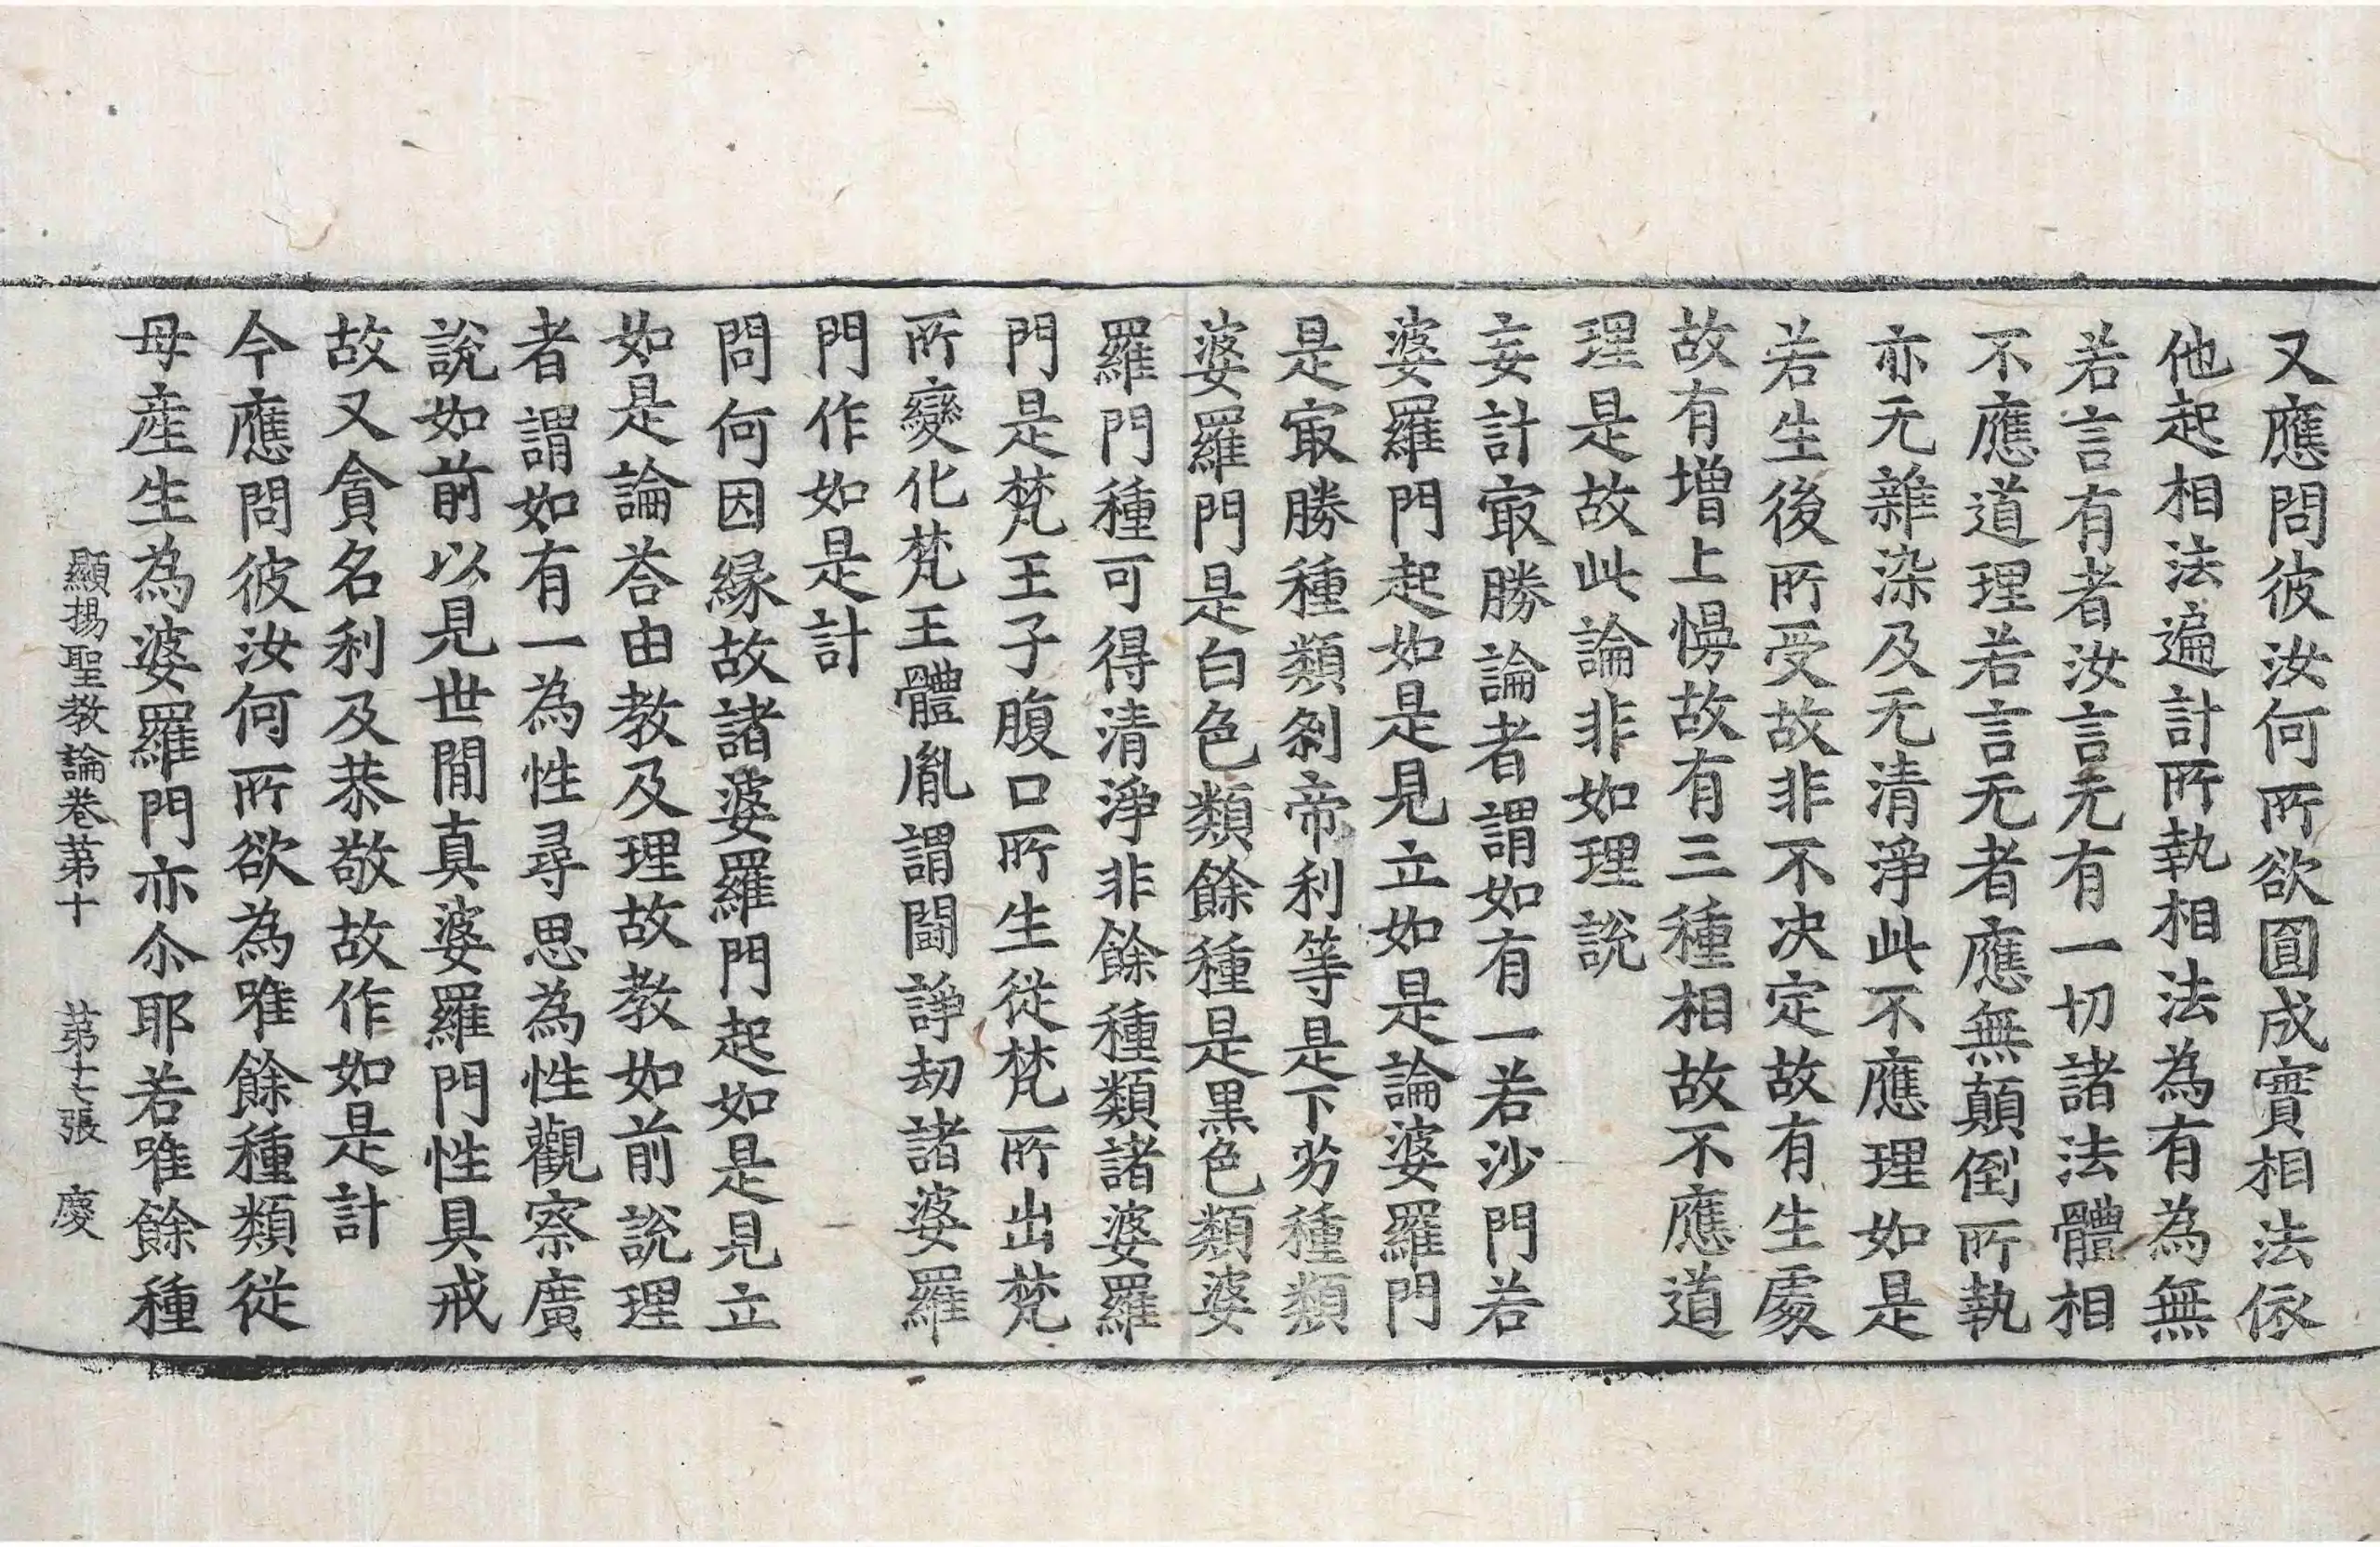 又應問彼汝何所欲圓成實相法依
他起相法遍計所執相法為有為無
若言有者汝言无有一切諸法體相
不應道理若言无者應無顛倒所執
亦无雜染及无清淨此不應理如是
若生後所受故非不决定故有生處
故有增上慢故有三種相故不應道
理是故此論非如理說
妄計㝡勝論者謂如有一若沙門若
婆羅門起如是見立如是論婆羅門
是㝡勝種類剎帝利等是下劣種類
婆羅門是白色類餘種是黑色類婆
羅門種可得清淨非餘種類諸婆羅
門是梵王子腹口所生從梵所出梵
所變化梵王體胤謂鬪諍劫諸婆羅
門作如是計
問何因緣故諸婆羅門起如是見立
如是論荅由教及理故教如前說理
者謂如有一為性尋思為性觀察廣
說如前以見世間真婆羅門性具戒
故又貪名利及恭敬故作如是計
今應問彼汝何所欲為唯餘種類從
母產生為婆羅門亦尒耶若唯餘種
顯揚聖教論卷第十　第十七張　慶